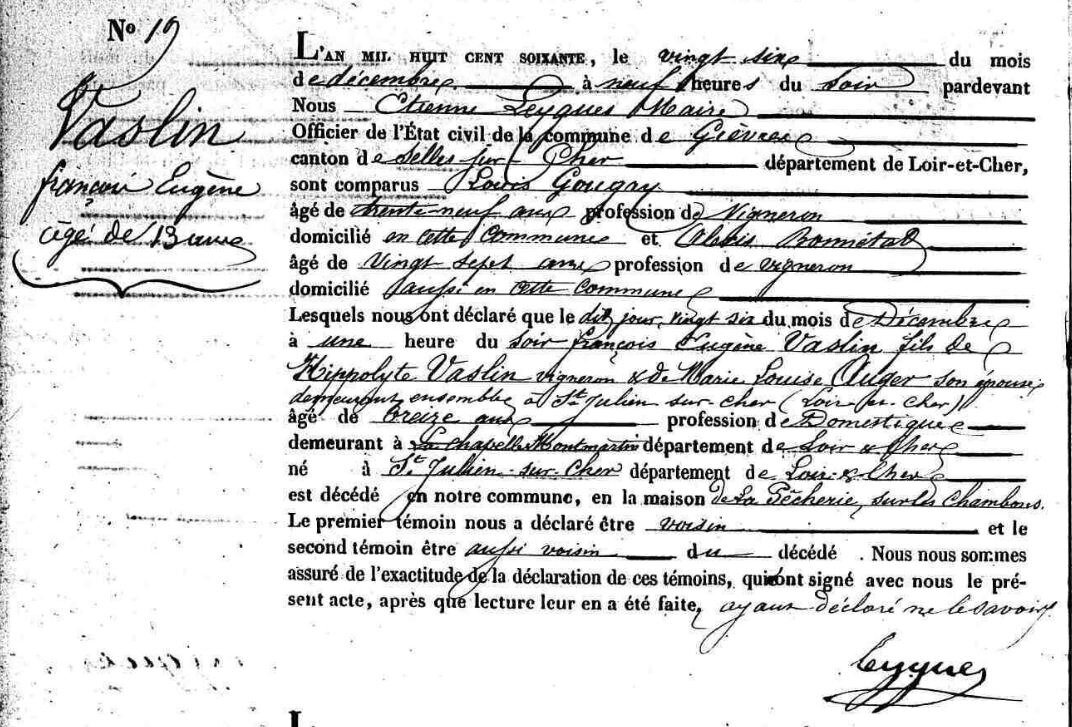 No 19
Vaslin
françois Eugène
âgé de 13 ans
L'AN MIL HUIT CENT SOIXANTE, le vingt six du mois
de décembre à neuf heures du soir pardevant
Nous Etienne Leygues Maire
Officier de l'État civil de la commune de Gièvres
canton de Selles sur Cher département de Loir-et-Cher,
sont comparus Louis Gougay
âgé de trente-neuf ans profession de Vigneron
domicilié en cette Commune et Alexis
âgé de Vingt sept ans profession de vigneron
domicilié aussi en cette Commune
Lesquels nous ont déclaré que le dit jour, vingt six du mois de Décembre
à une heure du soir françois Eugène Vaslin fils de
Hippolyte Vaslin vigneron & de Marie Louise Auger son épouse
demeurant ensemble à St Julien sur cher (Loir et cher)
âgé de treize ans profession de Domestique
demeurant à La Chapelle Montmartin département de Loir & Cher
né à St Julien-sur-Cher département de Loir-&-Cher
est décédé en notre commune, en la maison de La Pêcherie, sur les Chambons.
Le premier témoin nous a déclaré être voisin et le
second témoin être aussi voisin du décédé. Nous nous sommes
assuré de l'exactitude de la déclaration de ces témoins, qui ont signé avec nous le pré-
sent acte, après que lecture leur en a été faite, ayant déclaré ne le savoir
Leygues